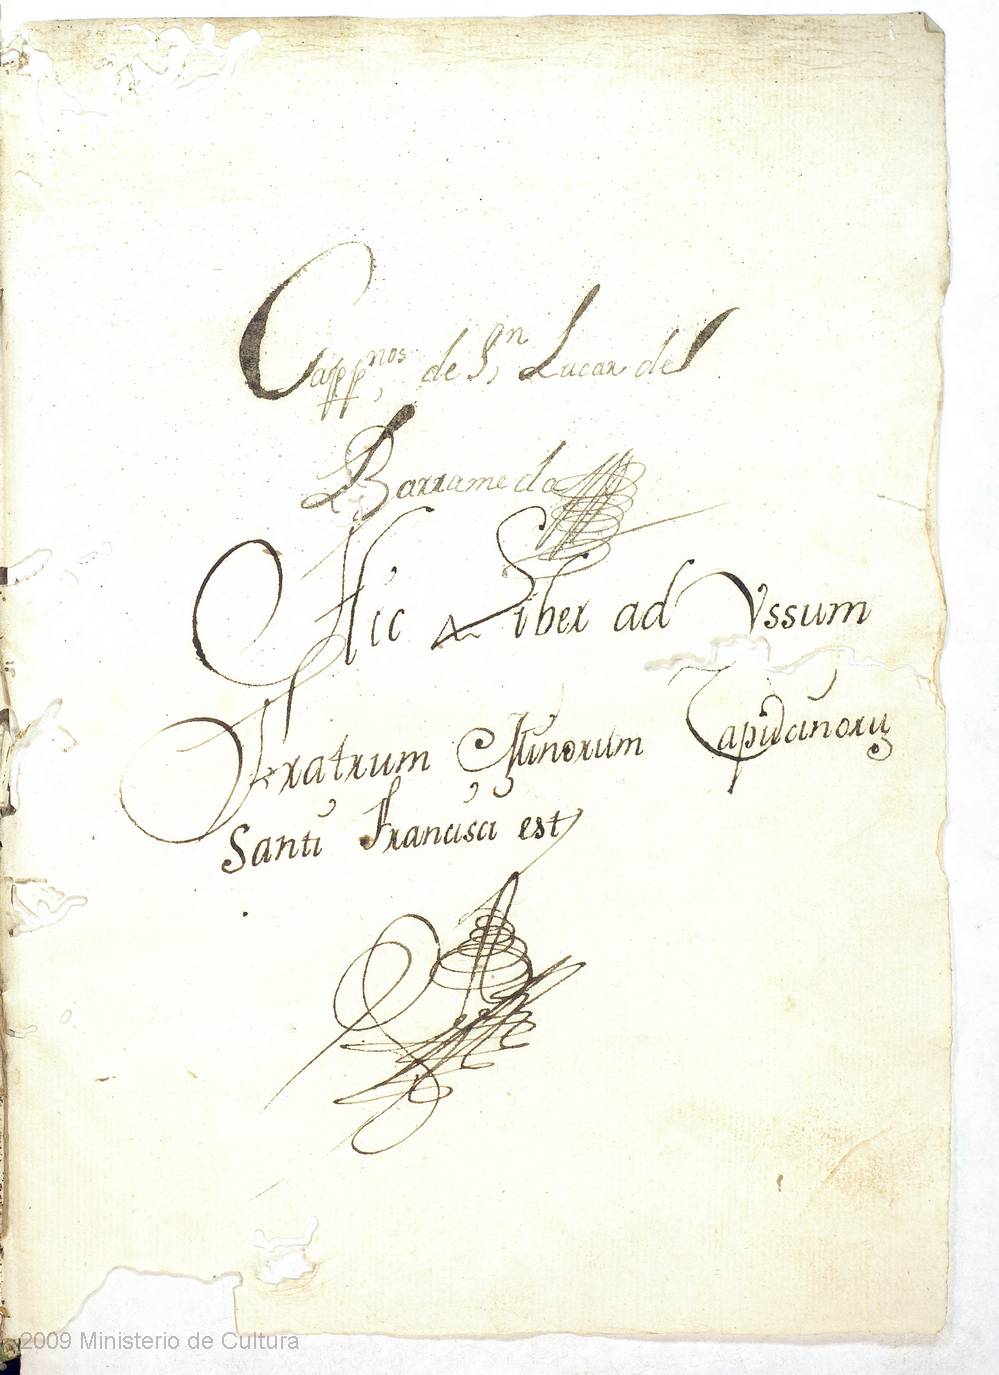 Capp.nos de S.n Lucar de
Barrameda
Hic Liber ad Vssum
Fratrum Minorum Capucinorũ
Santi Francisci est
2009 Ministerio de Cultura